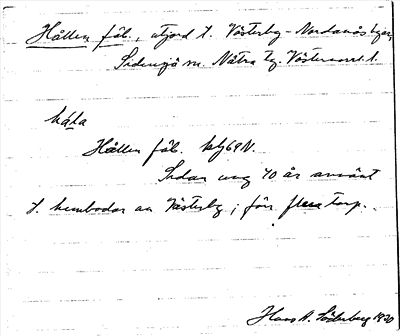 Hållen fäb., utjord t. Västerby - Nordanås byar,
Sidensjö sn. Nätra tg. Västernorrl. l.
håla
Hållen fäb.
Sedan ung 70 år använt
t. hembodar av Västerby; förr flera torp.
Hans A. Söderberg 1930